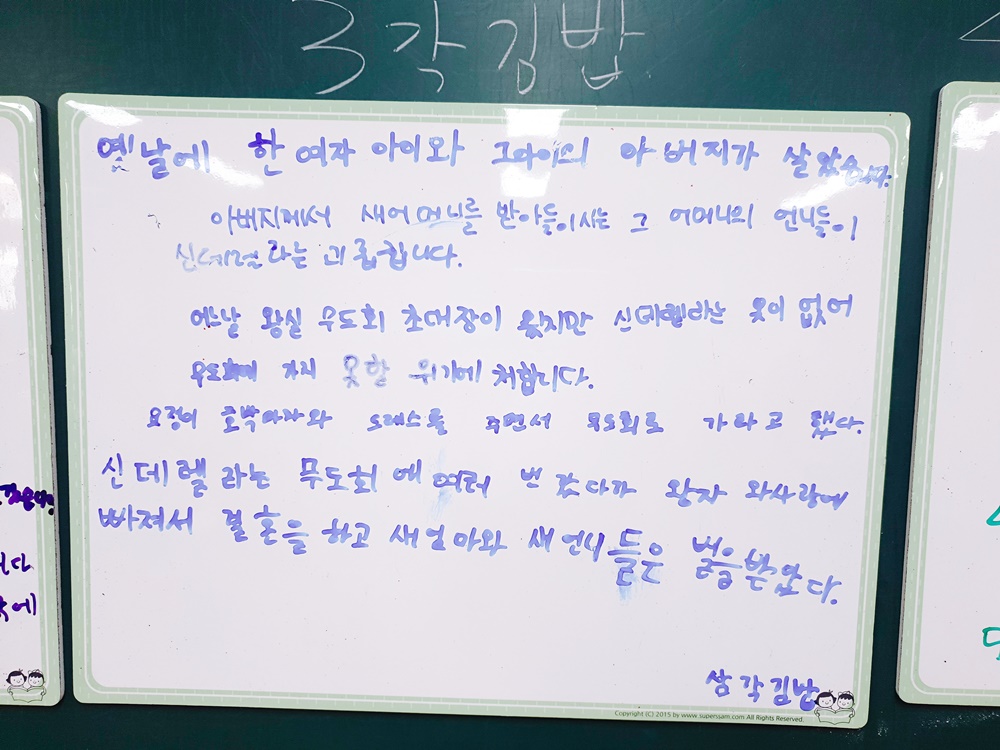 3각김밥
옛날에 한 여자 아이와 그아이의 아버지가 살았습니다.
아버지께서 새어머니를 받아들이시는 그 어머니의 언니들이
신데렐라는 괴롭힙니다.
어느날 왕실 무도회 초대장이 왔지만 신데렐라는 옷이 없어
무도회에 가지 못할 위기에 처합니다.
요정이 호박마차와 드레스를 주면서 무도회로 가라고 했다.
신데렐라는 무도회에 여러 번 갔다가 왕자 와사랑에
빠져서 결혼을 하고 새엄마와 새언니들은 벌을받았다.
삼각김밥
Copyright (C) 2015 by www.superssam.com All Rights Reserved.
니다
에